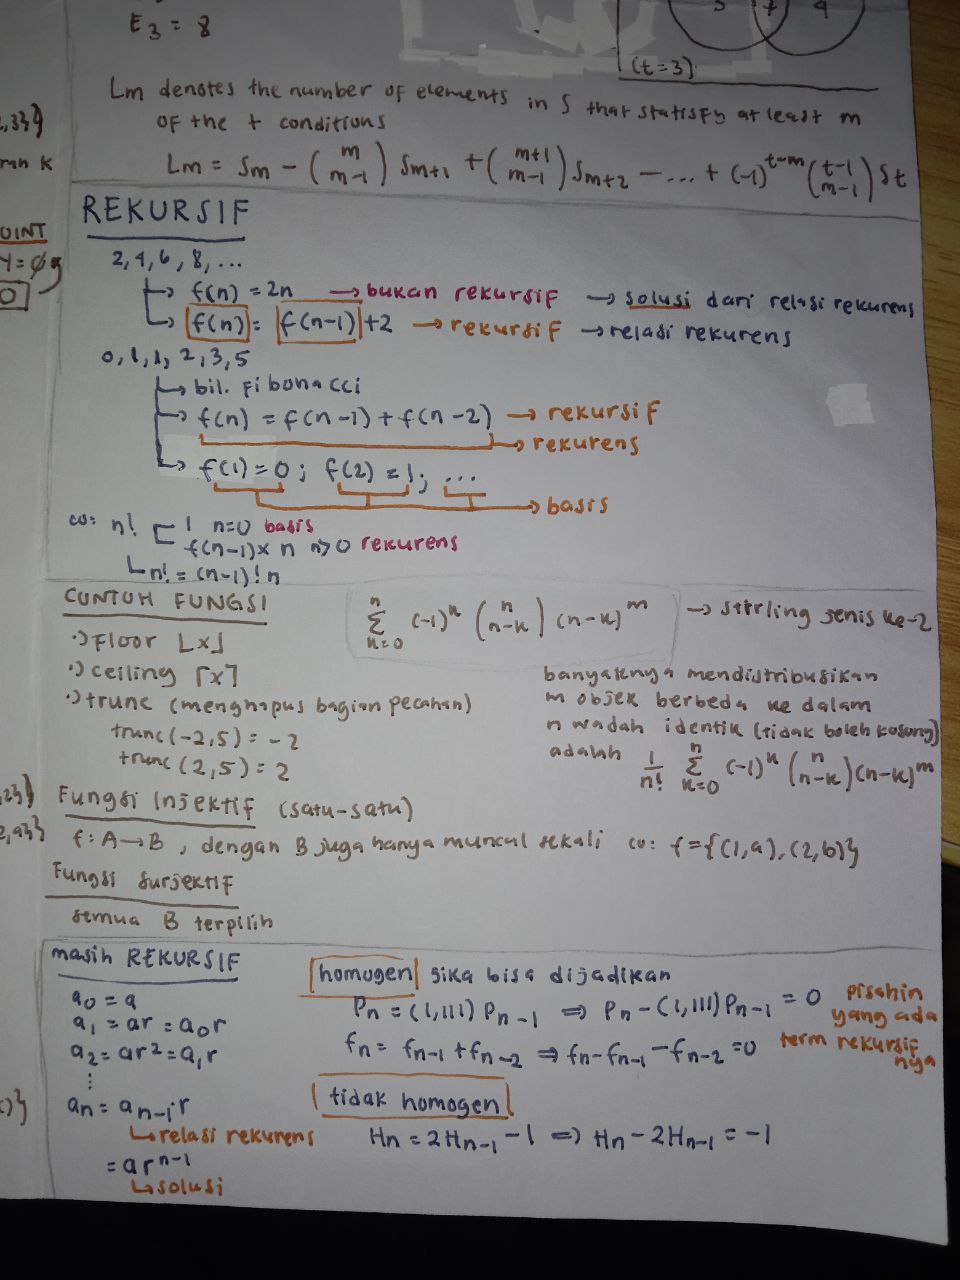 E3 = 8
5 7 4
(t=3)
Lm denotes the number of elements in S that statisfy at least m
of the t conditions
Lm = Sm - (m m-1) Sm+1 + (m+1 m-1) Sm+2 - ... + (-1)^t-m (t-1 m-1) St
,33}
ran K
OINT
Y = ∅
0
REKURSIF
2, 4, 6, 8, ...
→ f(n) = 2n → bukan rekursif → solusi dari relasi rekurens
→ f(n) = f(n-1) + 2 → rekursif → relasi rekurens
0, 1, 1, 2, 3, 5
→ bil. Fibonacci
→ f(n) = f(n-1) + f(n-2) → rekursif
→ rekurens
→ f(1) = 0 ; f(2) = 1 ; ...
→ basis
co: n! [ 1 n=0 basis
f(n-1) x n n>0 rekurens
n! = (n-1)! n
CONTOH FUNGSI
·) Floor ⌊x⌋
·) ceiling ⌈x⌉
·) trunc (menghapus bagian pecahan)
trunc (-2,5) = -2
trunc (2,5) = 2
n Σ k=0 (-1)^k (n n-k) (n-k)^m → stirling jenis ke-2
banyaknya mendistribusikan
m objek berbeda ke dalam
n wadah identik (tidak boleh kosong)
adalah 1/n! n Σ k=0 (-1)^k (n n-k) (n-k)^m
Fungsi Injektif (satu-satu)
f: A → B , dengan B juga hanya muncul sekali co: f = {(1,a), (2,b)}
Fungsi Surjektif
semua B terpilih
masih REKURSIF
a0 = a
a1 = ar = a0r
a2 = ar² = a1r
⋮
an = an-1 r
↳ relasi rekurens
= ar^n-1
↳ solusi
homogen jika bisa dijadikan
Pn = (1,111) Pn-1 ⇒ Pn - (1,111) Pn-1 = 0
fn = fn-1 + fn-2 ⇒ fn - fn-1 - fn-2 = 0
pisahin
yang ada
term rekursif
nya
tidak homogen
Hn = 2Hn-1 - 1 ⇒ Hn - 2Hn-1 = -1